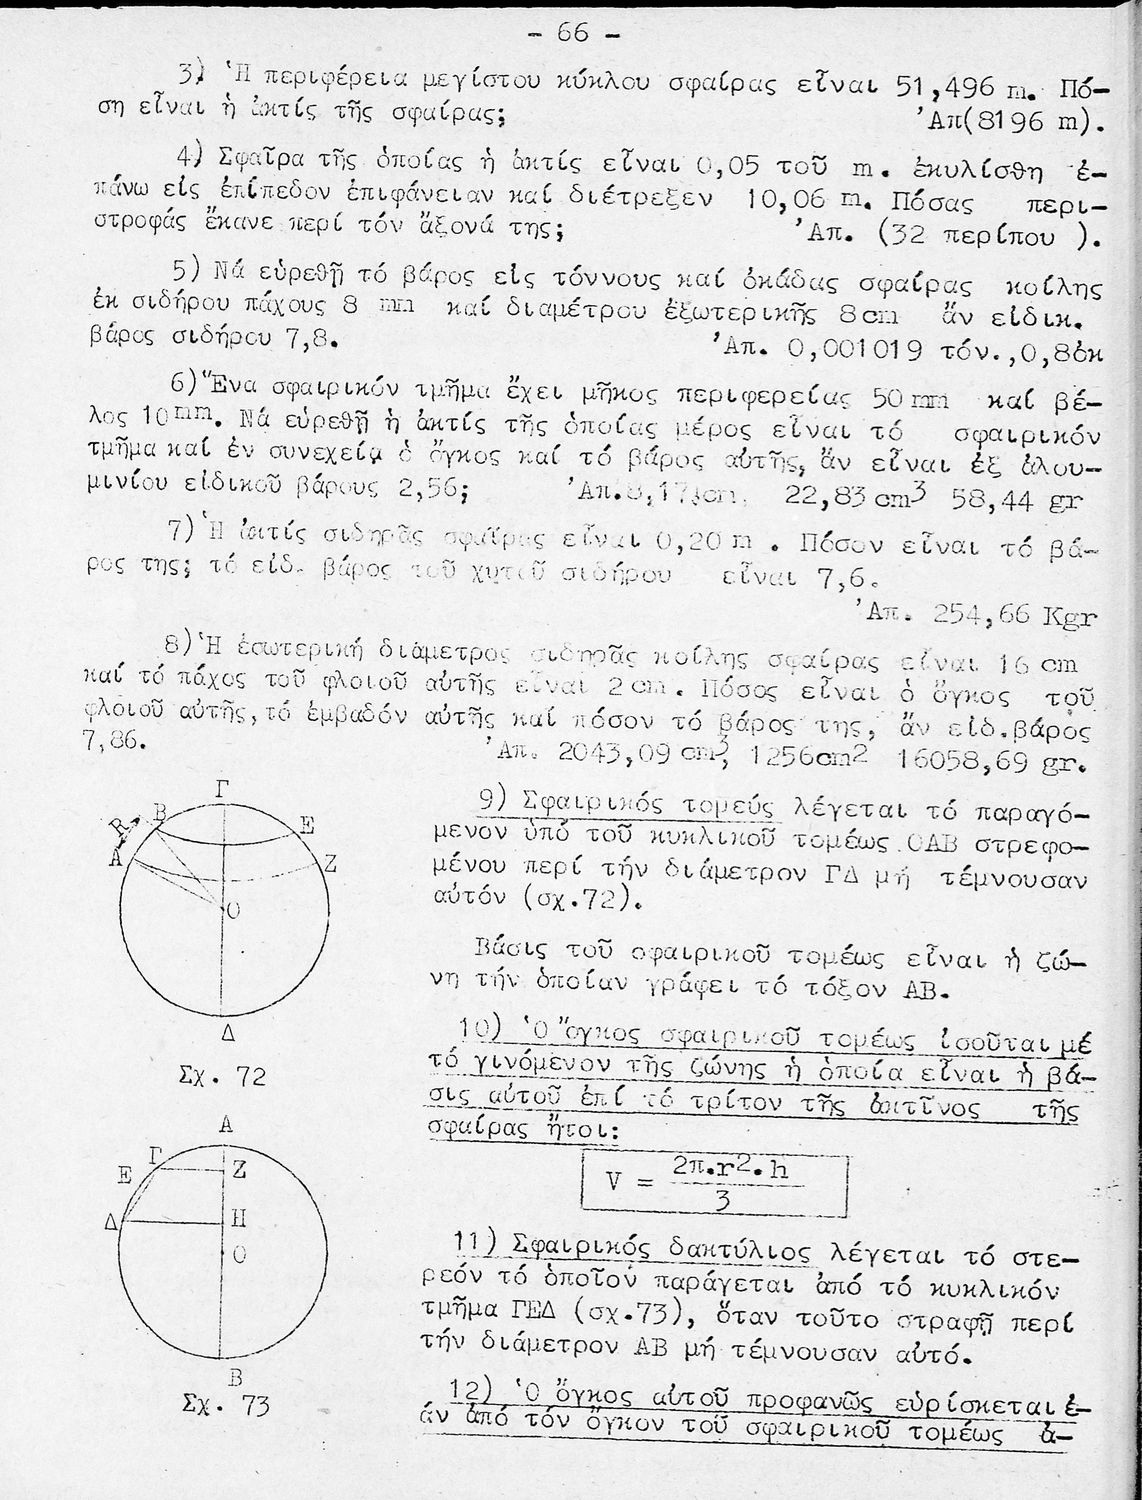 - 66 -
3) Ἡ περιφέρεια μεγίστου κύκλου σφαίρας εἶναι 51,496 m. Πό-
ση εἶναι ἡ ἀκτίς τῆς σφαίρας; Ἀπ(8196 m).
4) Σφαῖρα τῆς ὁποίας ἡ ἀκτίς εἶναι 0,05 τοῦ m. ἐκυλίσθη ἐ-
πάνω εἰς ἐπίπεδον ἐπιφάνειαν καί διέτρεξεν 10,06 m. Πόσας περι-
στροφάς ἔκανε περί τόν ἄξονά της; Ἀπ. (32 περίπου ).
5) Νά εὑρεθῇ τό βάρος εἰς τόννους καί ὀκάδας σφαίρας κοίλης
ἐκ σιδήρου πάχους 8 mm καί διαμέτρου ἐξωτερικῆς 8cm ἄν εἰδικ.
βάρος σιδήρου 7,8. Ἀπ. 0,001019 τόν.,0,8ὀκ
6) Ἕνα σφαιρικόν τμῆμα ἔχει μῆκος περιφερείας 50 mm καί βέ-
λος 10 mm. Νά εὑρεθῇ ἡ ἀκτίς τῆς ὁποίας μέρος εἶναι τό σφαιρικόν
τμῆμα καί ἐν συνεχείᾳ ὁ ὄγκος καί τό βάρος αὐτῆς, ἄν εἶναι ἐξ ἀλου-
μινίου εἰδικοῦ βάρους 2,56; Ἀπ. 22,83 cm3 58,44 gr
7) Ἡ ἀκτίς σιδηρᾶς σφαίρας εἶναι 0,20 m . Πόσον εἶναι τό βά-
ρος της; τό εἰδ. βάρος τοῦ χυτοῦ σιδήρου εἶναι 7,6.
Ἀπ. 254,66 Kgr
8) Ἡ ἐσωτερική διάμετρος σιδηρᾶς κοίλης σφαίρας εἶναι 16 cm
καί τό πάχος τοῦ φλοιοῦ αὐτῆς εἶναι 2 cm. Πόσος εἶναι ὁ ὄγκος τοῦ
φλοιοῦ αὐτῆς, τό ἐμβαδόν αὐτῆς καί πόσον τό βάρος της, ἄν εἰδ.βάρος
7,86. Ἀπ. 2043,09 cm3, 1256cm2 16058,69 gr.
Γ
R
B
E
A
Z
O
Δ
Σχ. 72
9) Σφαιρικός τομεύς λέγεται τό παραγό-
μενον ὑπό τοῦ κυκλικοῦ τομέως ΟΑΒ στρεφο-
μένου περί τήν διάμετρον ΓΔ μή τέμνουσαν
αὐτόν (σχ.72).
Βάσις τοῦ σφαιρικοῦ τομέως εἶναι ἡ ζώ-
νη τήν ὁποίαν γράφει τό τόξον ΑΒ.
10) Ὁ ὄγκος σφαιρικοῦ τομέως ἰσοῦται μέ
τό γινόμενον τῆς ζώνης ἡ ὁποία εἶναι ἡ βά-
σις αὐτοῦ ἐπί τό τρίτον τῆς ἀκτῖνος τῆς
σφαίρας ἤτοι:
V = 2π.r2.h / 3
A
Γ
E
Z
Δ
H
O
B
Σχ. 73
11) Σφαιρικός δακτύλιος λέγεται τό στε-
ρεόν τό ὁποῖον παράγεται ἀπό τό κυκλικόν
τμῆμα ΓΕΔ (σχ.73), ὅταν τοῦτο στραφῇ περί
τήν διάμετρον ΑΒ μή τέμνουσαν αὐτό.
12) Ὁ ὄγκος αὐτοῦ προφανῶς εὑρίσκεται ἐ-
άν ἀπό τόν ὄγκον τοῦ σφαιρικοῦ τομέως ἀ-